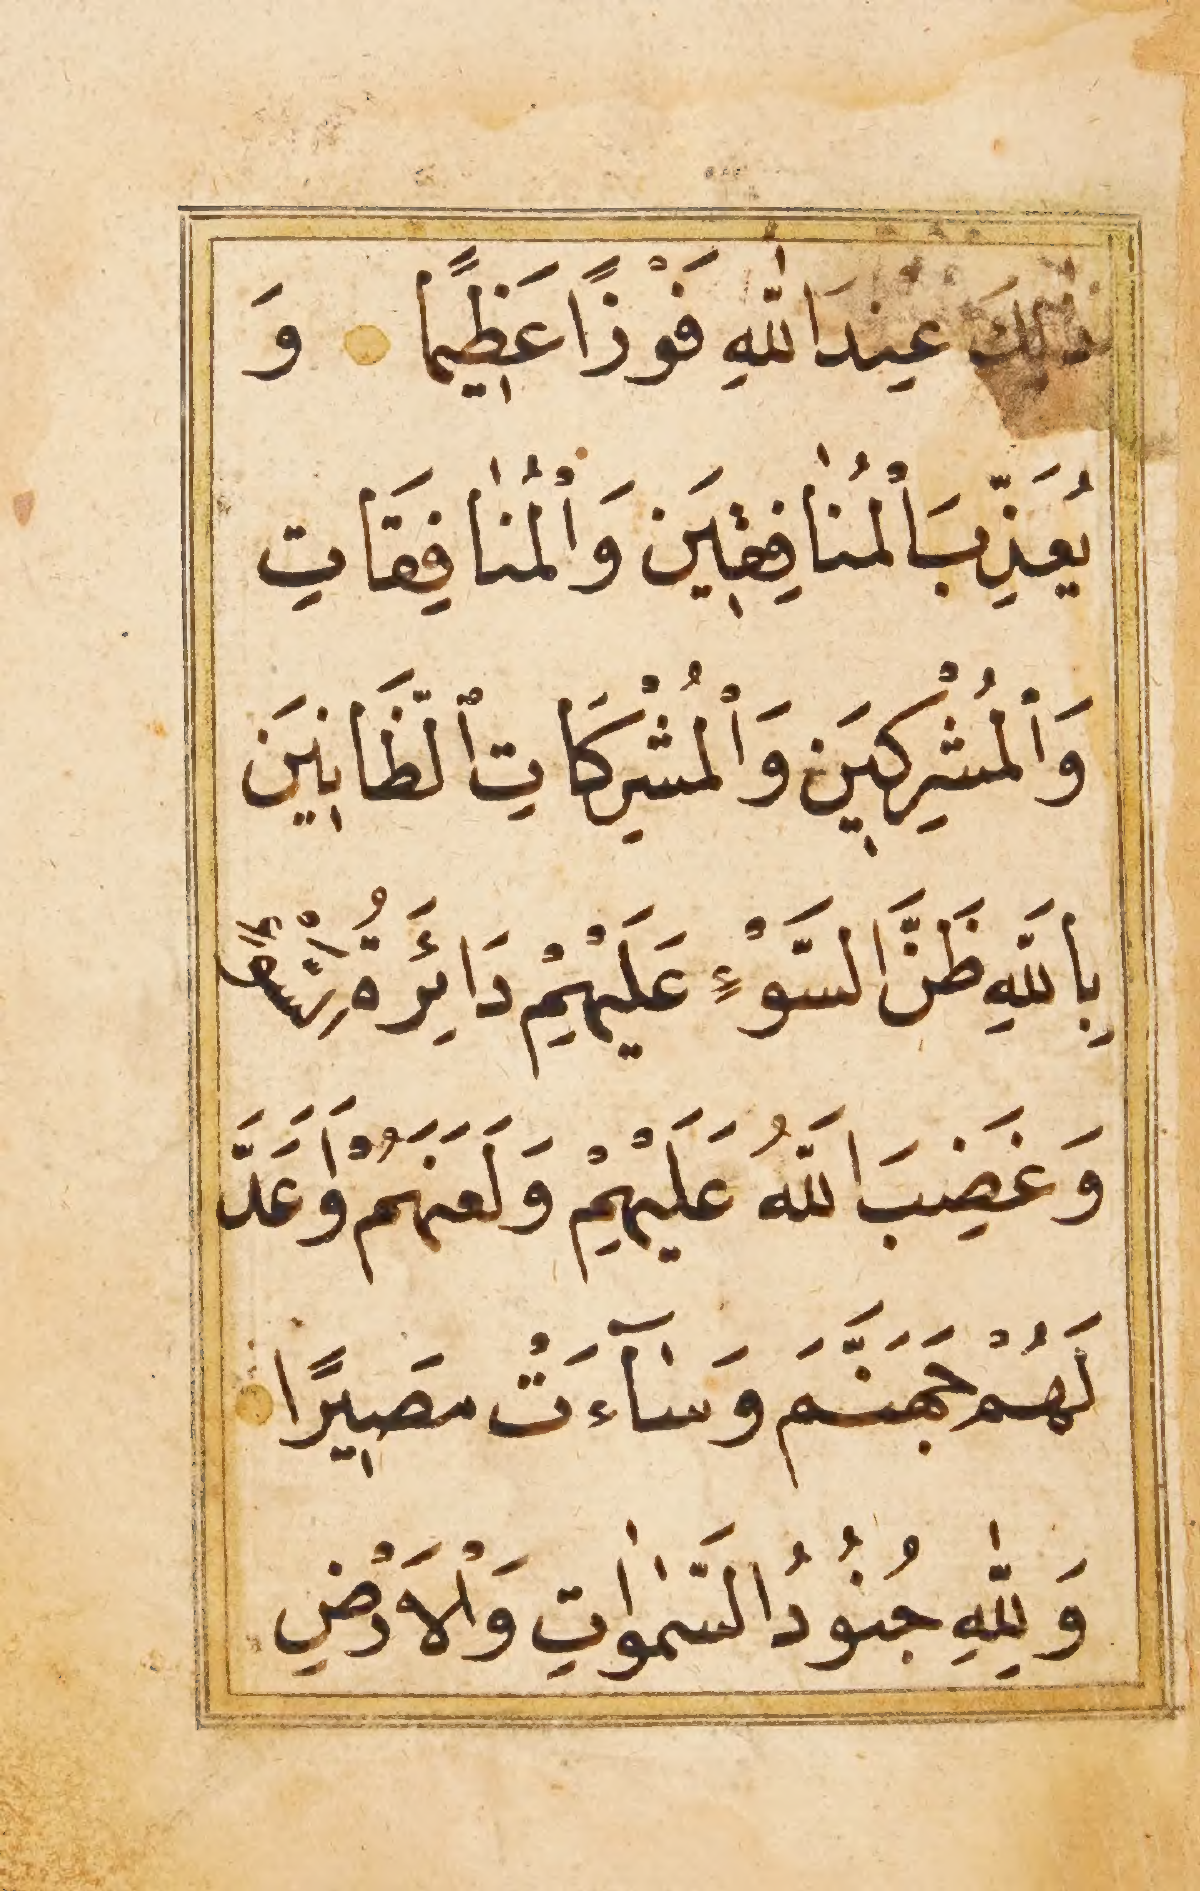 ذٰلِكَ عِندَ اللّٰهِ فَوْزًا عَظِيمًا وَ
يُعَذِّبَ الْمُنٰافِقِينَ وَالْمُنٰافِقَاتِ
وَالْمُشْرِكِينَ وَالْمُشْرِكَاتِ الظَّانِينَ
بِاللَّهِ ظَنَّ السَّوْءِ عَلَيْهِمْ دَائِرَةُ السَّوْءِ
وَغَضِبَ اللَّهُ عَلَيْهِمْ وَلَعَنَهُمْ وَاَعَدَّ
لَهُمْ جَهَنَّمَ وَسٰآءَتْ مَصِيرًا
وَلِلّٰهِ جُنُودُ السَّمٰوٰتِ وَالْاَرْضِ